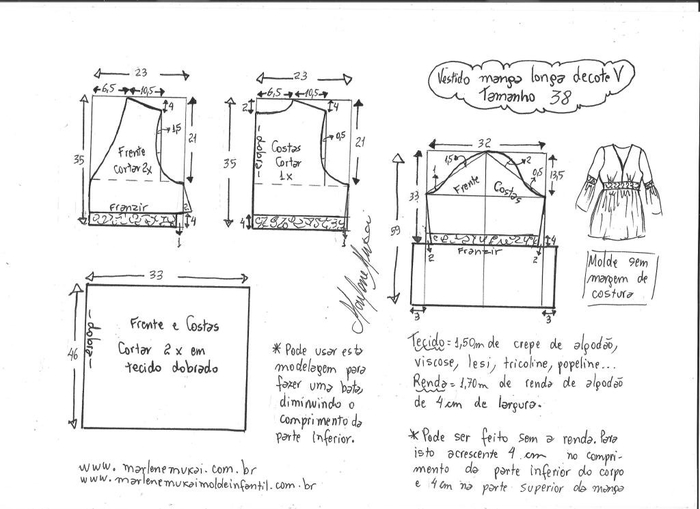 Vestido manga longa decote V
Tamanho 38
23
6,5
10,5
4
1,5
35
21
Frente
cortar 2x
Franzir
2
4
1
23
6,5
10,5
2
4
0,5
35
21
-dobra-
Costas
Cortar
1x
4
1
32
1,5
2
0,5
13,5
1
Frente
Costas
33
59
4
2
Franzir
2
3
3
Molde sem
margem de
costura
33
46
-dobra-
Frente e Costas
Cortar 2x em
tecido dobrado
Marlene Mukai
* Pode usar esta
modelagem para
fazer uma bata,
diminuindo o
comprimento da
parte inferior.
Tecido = 1,50m de crepe de algodão,
viscose, lesi, tricoline, popeline...
Renda = 1,70m de renda de algodão
de 4cm de largura.
* Pode ser feito sem a renda. Para
isto acrescente 4 cm no compri-
mento da parte inferior do corpo
e 4cm na parte superior da manga
www.marlenemukai.com.br
www.marlenemukaimoldeinfantil.com.br